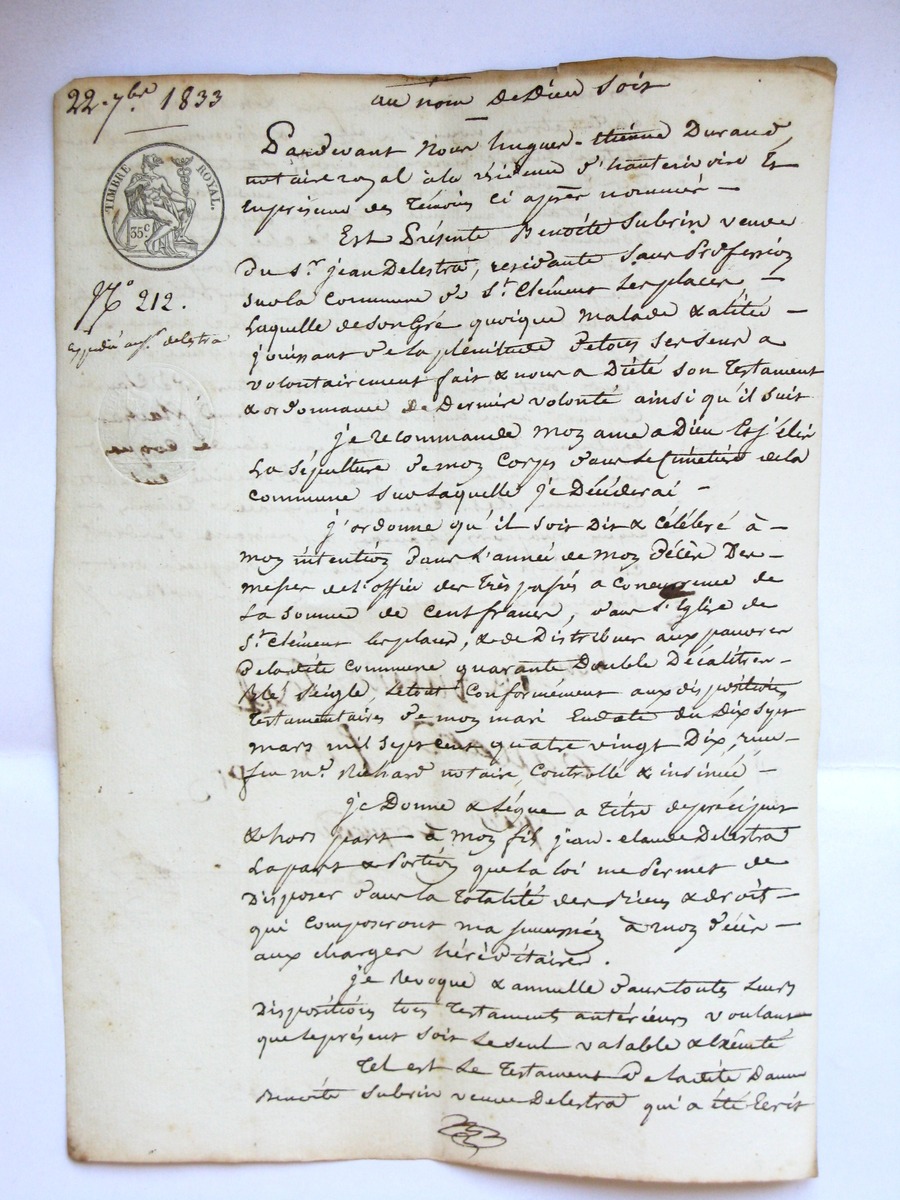 22. 7bre 1833
au nom de Dieu soit
TIMBRE ROYAL.
35c
N° 212.
Pardevant Nous hugues-étienne Durand
notaire royal à la résidence d'hauterivoire et
en présence des témoins ci après nommés –
Est Présente Benoîte Subrin veuve
du Sr. jean Delestra, residante sans Profession
sur la commune de St. Clément les places, –
Laquelle de son Gré quoique malade & alitée –
jouissant de la plénitude de tous ses sens a
volontairement fait & nous a Dicté son Testament
& ordonnance de Dernière volonté ainsi qu'il suit
je recommande mon ame a Dieu Et j'élis
La Sépulture de mon Corps dans le Cimetière de la
commune sur Laquelle je Décéderai –
j'ordonne qu'il soit Dit & Célébré à –
mon intention dans l'année de mon décès Des –
messes de l'office des Trépassés a Concurrence de
La somme de cent francs, dans l'Eglise de
St. Clément les places, & de Distribuer aux pauvres
de la dite Commune quarante Double Décalitres –
Blé Seigle, Le tout Conformément aux dispositions
Testamentaires de mon mari En date du Dix Sept
mars mil Sept cent quatre vingt Dix, reçu –
feu me. Richard notaire, Controllé & insinué –
je Donne & Légue a titre de préciput
& hors part à mon fils jean-claude Delestra
La part & Portion que la loi me Permet de
Disposer dans la totalité des Biens & droits –
qui composeront ma succession à mon décès –
aux charges héréditaires.
je Revoque & annulle dans toutes Leurs
Dispositions tous Testaments antérieurs voulant
que le présent soit Le seul valable & Exécuté
Tel est Le Testament de la dite Dame
Benoîte Subrin veuve Delestra qui a été Ecrit